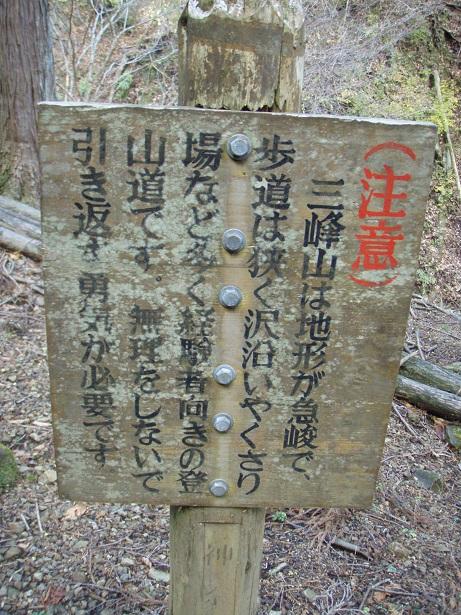 (注意)
三峰山は地形が急峻で、
歩道は狭く沢沿いやくさり
場など多く経験者向きの登
山道です。無理をしないで
引き返す勇気が必要です